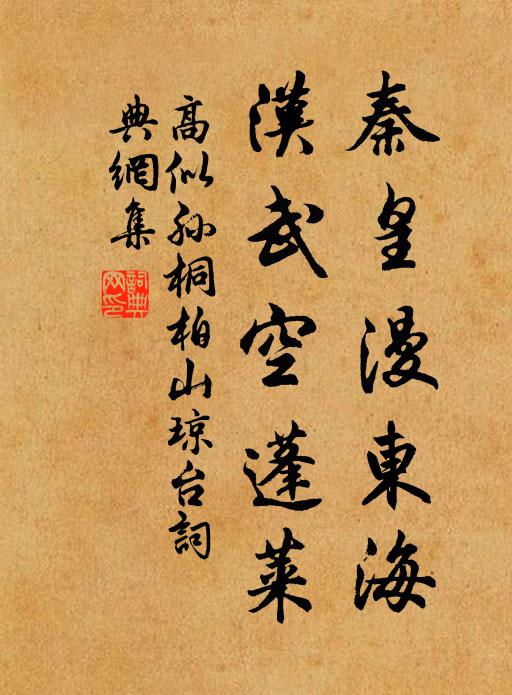 秦皇漫東海
漢武空蓬萊
高似孙桐柏山琼台詞
典網集
詞典
网印